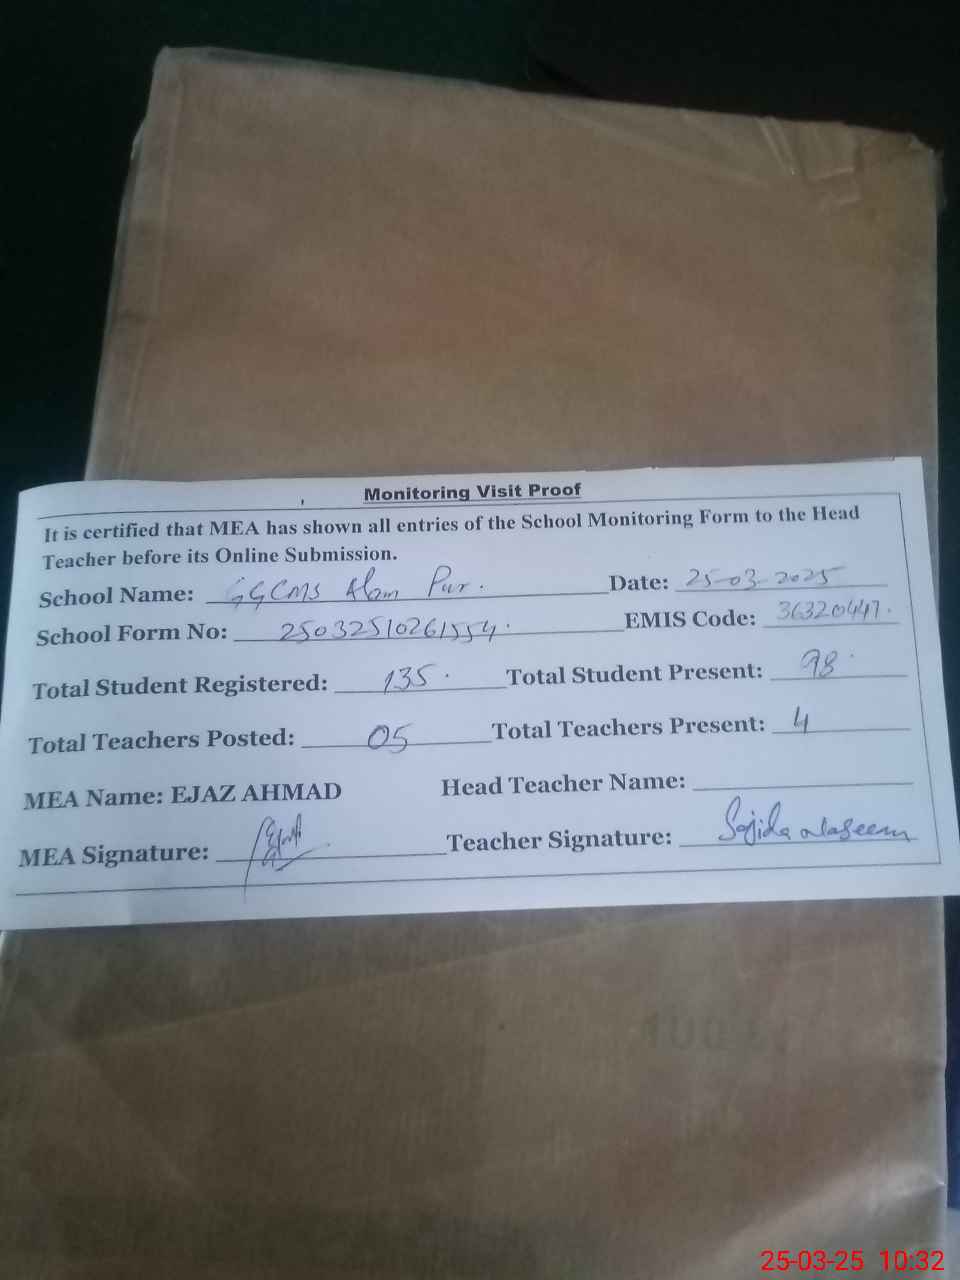 Monitoring Visit Proof
It is certified that MEA has shown all entries of the School Monitoring Form to the Head
Teacher before its Online Submission.
School Name: GGCMS Alam Pur. Date: 25-03-2025
School Form No: 25032510261554. EMIS Code: 36320447.
Total Student Registered: 135. Total Student Present: 98.
Total Teachers Posted: 05 Total Teachers Present: 4
MEA Name: EJAZ AHMAD Head Teacher Name:
MEA Signature: Teacher Signature: Sajida Naseem
25-03-25 10:32